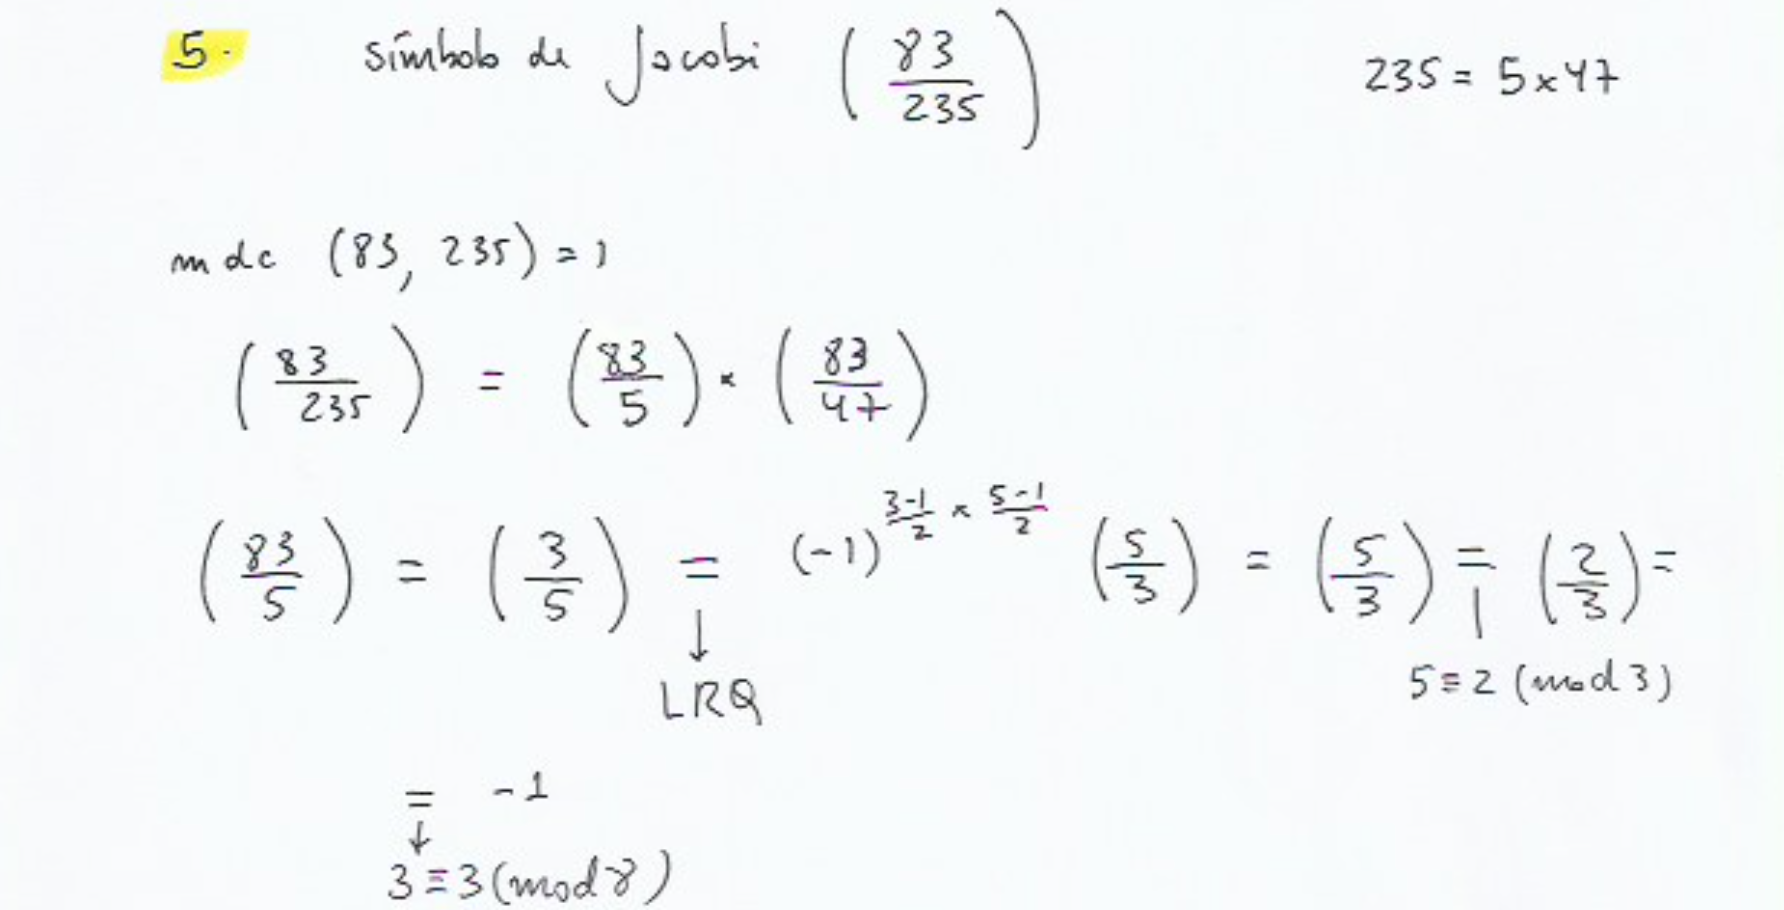 5. símbolo de Jacobi (83/235) 235 = 5x47
mdc (83, 235) = 1
(83/235) = (83/5) x (83/47)
(83/5) = (3/5) = (-1)^(3-1/2 x 5-1/2) (5/3) = (5/3) = (2/3) =
↓ |
LRQ 5≡2 (mod 3)
= -1
↓
3≡3 (mod 8)